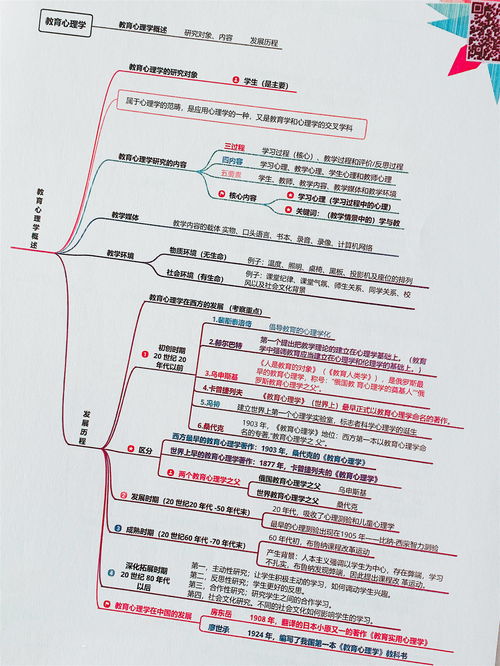 教育心理学
教育心理学概述
研究对象、内容
发展历程
教育心理学概述
教育心理学的研究对象
学生（是主要）
属于心理学的范畴，是应用心理学的一种，又是教育学和心理学的交叉学科
教育心理学研究的内容
三过程
学习过程（核心）、教学过程和评价/反思过程
四内容
学习心理、教学心理、学生心理和教师心理
五要素
学生、教师、教学内容、教学媒体和教学环境
核心内容
学习心理（学习过程中的心理）
关键词：（教学情景中的）学与教
教学媒体
教学内容的载体 实物、口头语言、书本、录音、录像、计算机网络
教学环境
物质环境（无生命）
例子：温度、照明、桌椅、黑板、投影机及座位的排列
社会环境（有生命）
例子：课堂纪律、课堂气氛、师生关系、同学关系、校
风以及社会文化背景
发展历程
教育心理学在西方的发展 （考察重点）
1
初创时期
20 世纪 20
年代以前
1.裴斯泰洛奇
倡导教育的心理学化
2.赫尔巴特
第一个提出把教学理论的建立在心理学基础上。（教育
学中道德教育应当建立在心理学和伦理学的基础上。）
3.乌申斯基
《人是教育的对象》（《教育人类学》），是俄罗斯最
早的教育心理学，称号："俄国教 育心理学的奠基人""俄
罗斯教育心理学之父"。
4.卡普捷列夫
《教育心理学》（世界上）最早正式以教育心理学命名的著作。
5.冯特
建立世界上第一个心理学实验室，标志者科学心理学的诞生
6.桑代克
1903 年，《教育心理学》地位：西方第一本以教育心理学命
名的专著"教育心理学之 父"。
区分
西方最早的教育心理学著作：1903 年，桑代克的《教育心理学》
世界上早的教育心理学著作：1877 年，卡普捷列夫的《教育心理学》
两个教育心理学之父
俄国教育心理学之父
乌申斯基
世界教育心理学之父
桑代克
2
发展时期（20 世纪20 年代 -50 年代末）
20 年代，吸收了心理测验和儿童心理学
最早的心理测验出现在1905 年——比纳-西蒙智力测验
3
成熟时期（20 世纪60 年代 -70 年代末）
60 年代初，布鲁纳课程改革运动
产生背景：人本主义强调以学生为中心，存在弊端，学习
不扎实，布鲁纳发现弊端，因此提出课程改 革运动。
4
深化拓展时期
20 世纪 80 年代
以后
第一，主动性研究；让学生积极主动的学习，如何调动学生兴趣。
第二，反思性研究；学生更好的反思。
第三，合作性研究；研究学生之间的合作学习。
第四，社会文化研究，不同的社会文化如何影响学生的学习。
教育心理学在中国的发展
房东岳
1908 年，翻译的日本小原又一的著作《教育实用心理学》
廖世承
1924 年，编写了我国第一本《教育心理学》教科书